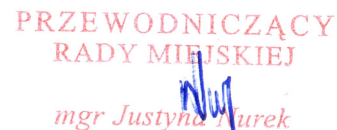 PRZEWODNICZĄCY
RADY MIEJSKIEJ
mgr Justyna Nurek